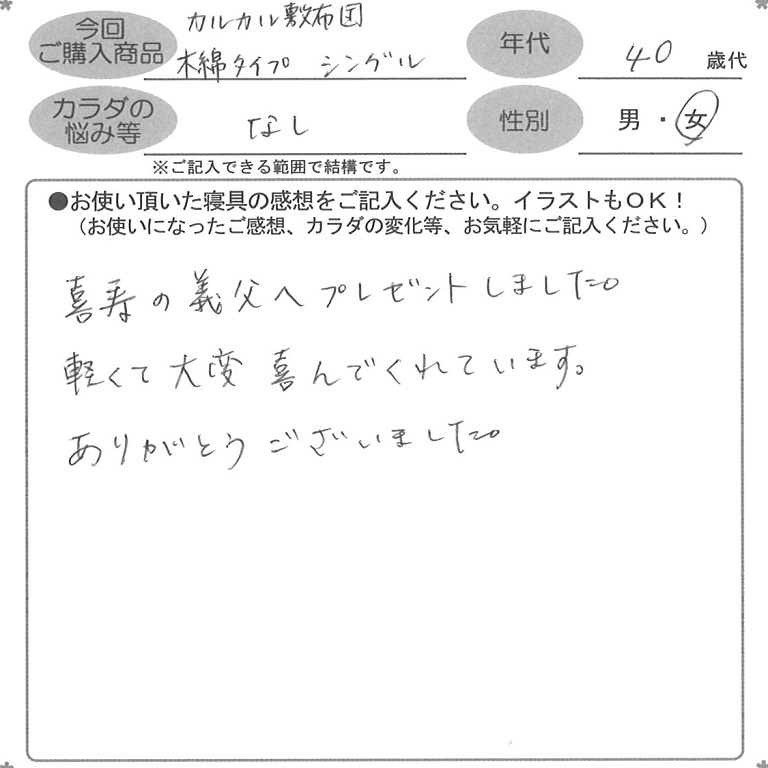 今回
ご購入商品
カルカル敷布団
木綿タイプ シングル
年代
40 歳代
カラダの
悩み等
なし
性別
男・女
※ご記入できる範囲で結構です。
●お使い頂いた寝具の感想をご記入ください。イラストもOK!
(お使いになったご感想、カラダの変化等、お気軽にご記入ください。)
喜寿の義父へプレゼントしました。
軽くて大変喜んでくれています。
ありがとうございました。